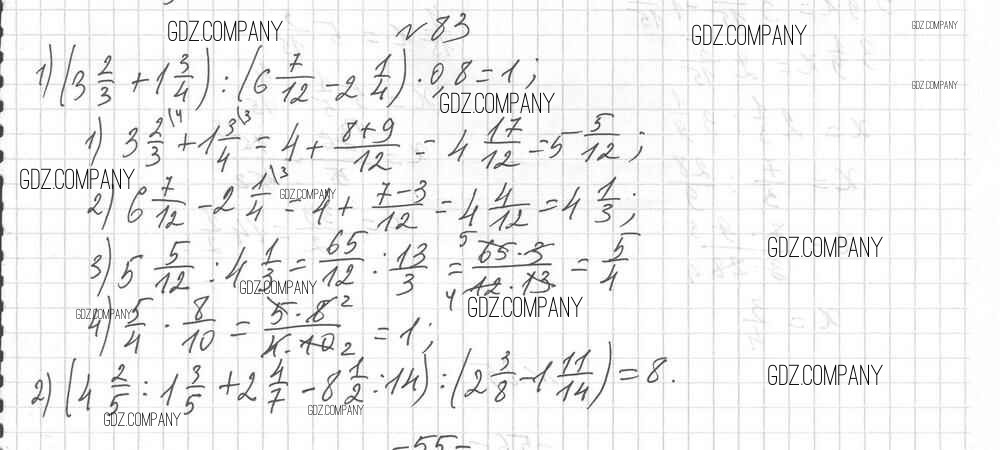 GDZ.COMPANY № 83 GDZ.COMPANY GDZ.COMPANY
1) (3 2/3 + 1 3/4) : (6 7/12 - 2 1/4) · 0,8 = 1; GDZ.COMPANY
GDZ.COMPANY
1) 3 2/3\4 + 1 3/4\3 = 4 + 8+9/12 = 4 17/12 = 5 5/12;
GDZ.COMPANY GDZ.COMPANY
2) 6 7/12 - 2 1/4\3 = 4 + 7-3/12 = 4 4/12 = 4 1/3;
GDZ.COMPANY
3) 5 5/12 : 4 1/3 = 65/12 : 13/3 = 5 65·3/4 12·13 = 5/4
GDZ.COMPANY GDZ.COMPANY GDZ.COMPANY
4) 5/4 · 8/10 = 5·8 2/4·10 2 = 1;
2) (4 2/5 : 1 3/5 + 2 4/7 - 8 1/2 : 14) : (2 3/8 - 1 11/14) = 8. GDZ.COMPANY
GDZ.COMPANY GDZ.COMPANY
-55-